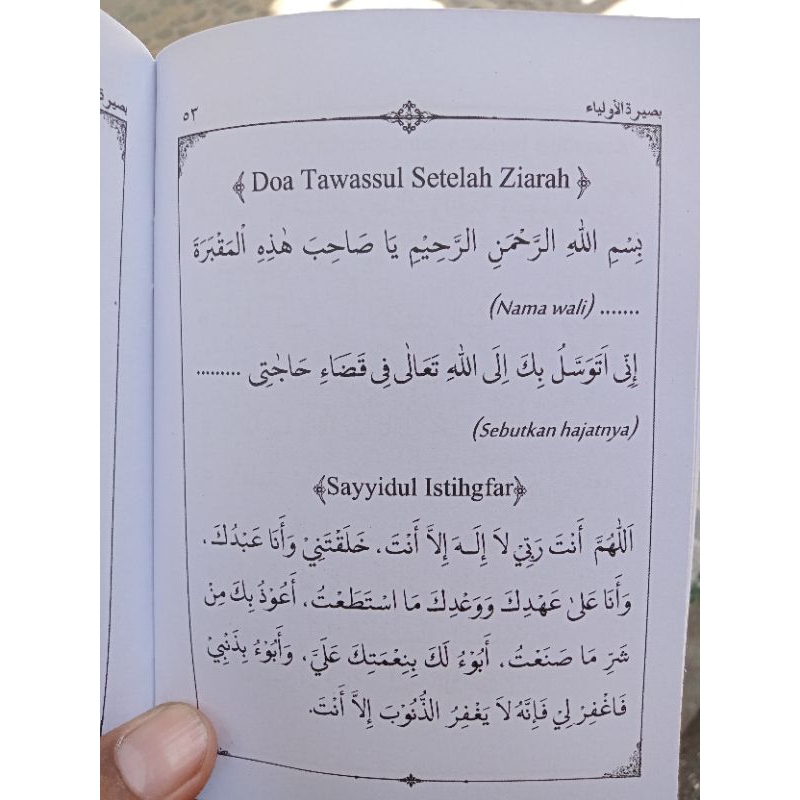 بصيرة الأولياء ٥٣
Doa Tawassul Setelah Ziarah
بِسْمِ اللهِ الرَّحْمَنِ الرَّحِيْمِ يَا صَاحِبَ هٰذِهِ الْمَقْبَرَةَ
....... (Nama wali)
اِنِّى اَتَوَسَّلُ بِكَ اِلَى اللهِ تَعَالٰى فِى قَضَاءِ حَاجٰتِى .........
(Sebutkan hajatnya)
Sayyidul Istihgfar
اَللّٰهُمَّ أَنْتَ رَبِّيْ لاَ إِلَـهَ إِلاَّ أَنْتَ، خَلَقْتَنِيْ وَأَنَا عَبْدُكَ،
وَأَنَا عَلَىٰ عَهْدِكَ وَوَعْدِكَ مَا اسْتَطَعْتُ، أَعُوْذُ بِكَ مِنْ
شَرِّ مَا صَنَعْتُ، أَبُوْءُ لَكَ بِنِعْمَتِكَ عَلَيَّ، وَأَبُوْءُ بِذَنْبِيْ
فَاغْفِرْ لِيْ فَإِنَّهُ لاَ يَغْفِرُ الذُّنُوْبَ إِلاَّ أَنْتَ.